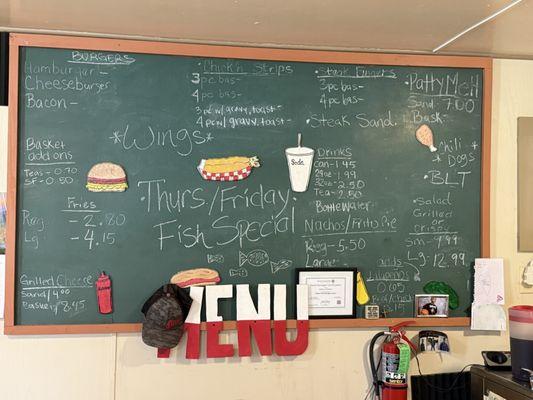 BURGERS
Hamburger -
Cheeseburger
Bacon -
Basket
add ons
Teas - 0.70
SF - 0.50
Fries
Reg - 2.80
Lg - 4.15
Grilled Cheese
Sand 4.00
Basket 8.45
• Chick'n Strips
3pc bas -
4pc bas -
3 pc w/ gravy, toast -
4 pc w/ gravy, toast -
*Wings
• Thurs./Friday •
Fish Special
• Steak Fingers
3pc bas -
4pc bas -
• Steak Sand.
Soda
Drinks
Can - 1.45
Tea -
Bottle Water
Nachos/Frito Pie
Reg - 5.50
Large -
• Patty Melt
Sand - 7.00
Bask -
Chili
Dogs
• BLT
• Salad
Grilled
or
Crispy
Sm - 7.99
Lg - 12.99
Jalapenos
MENU